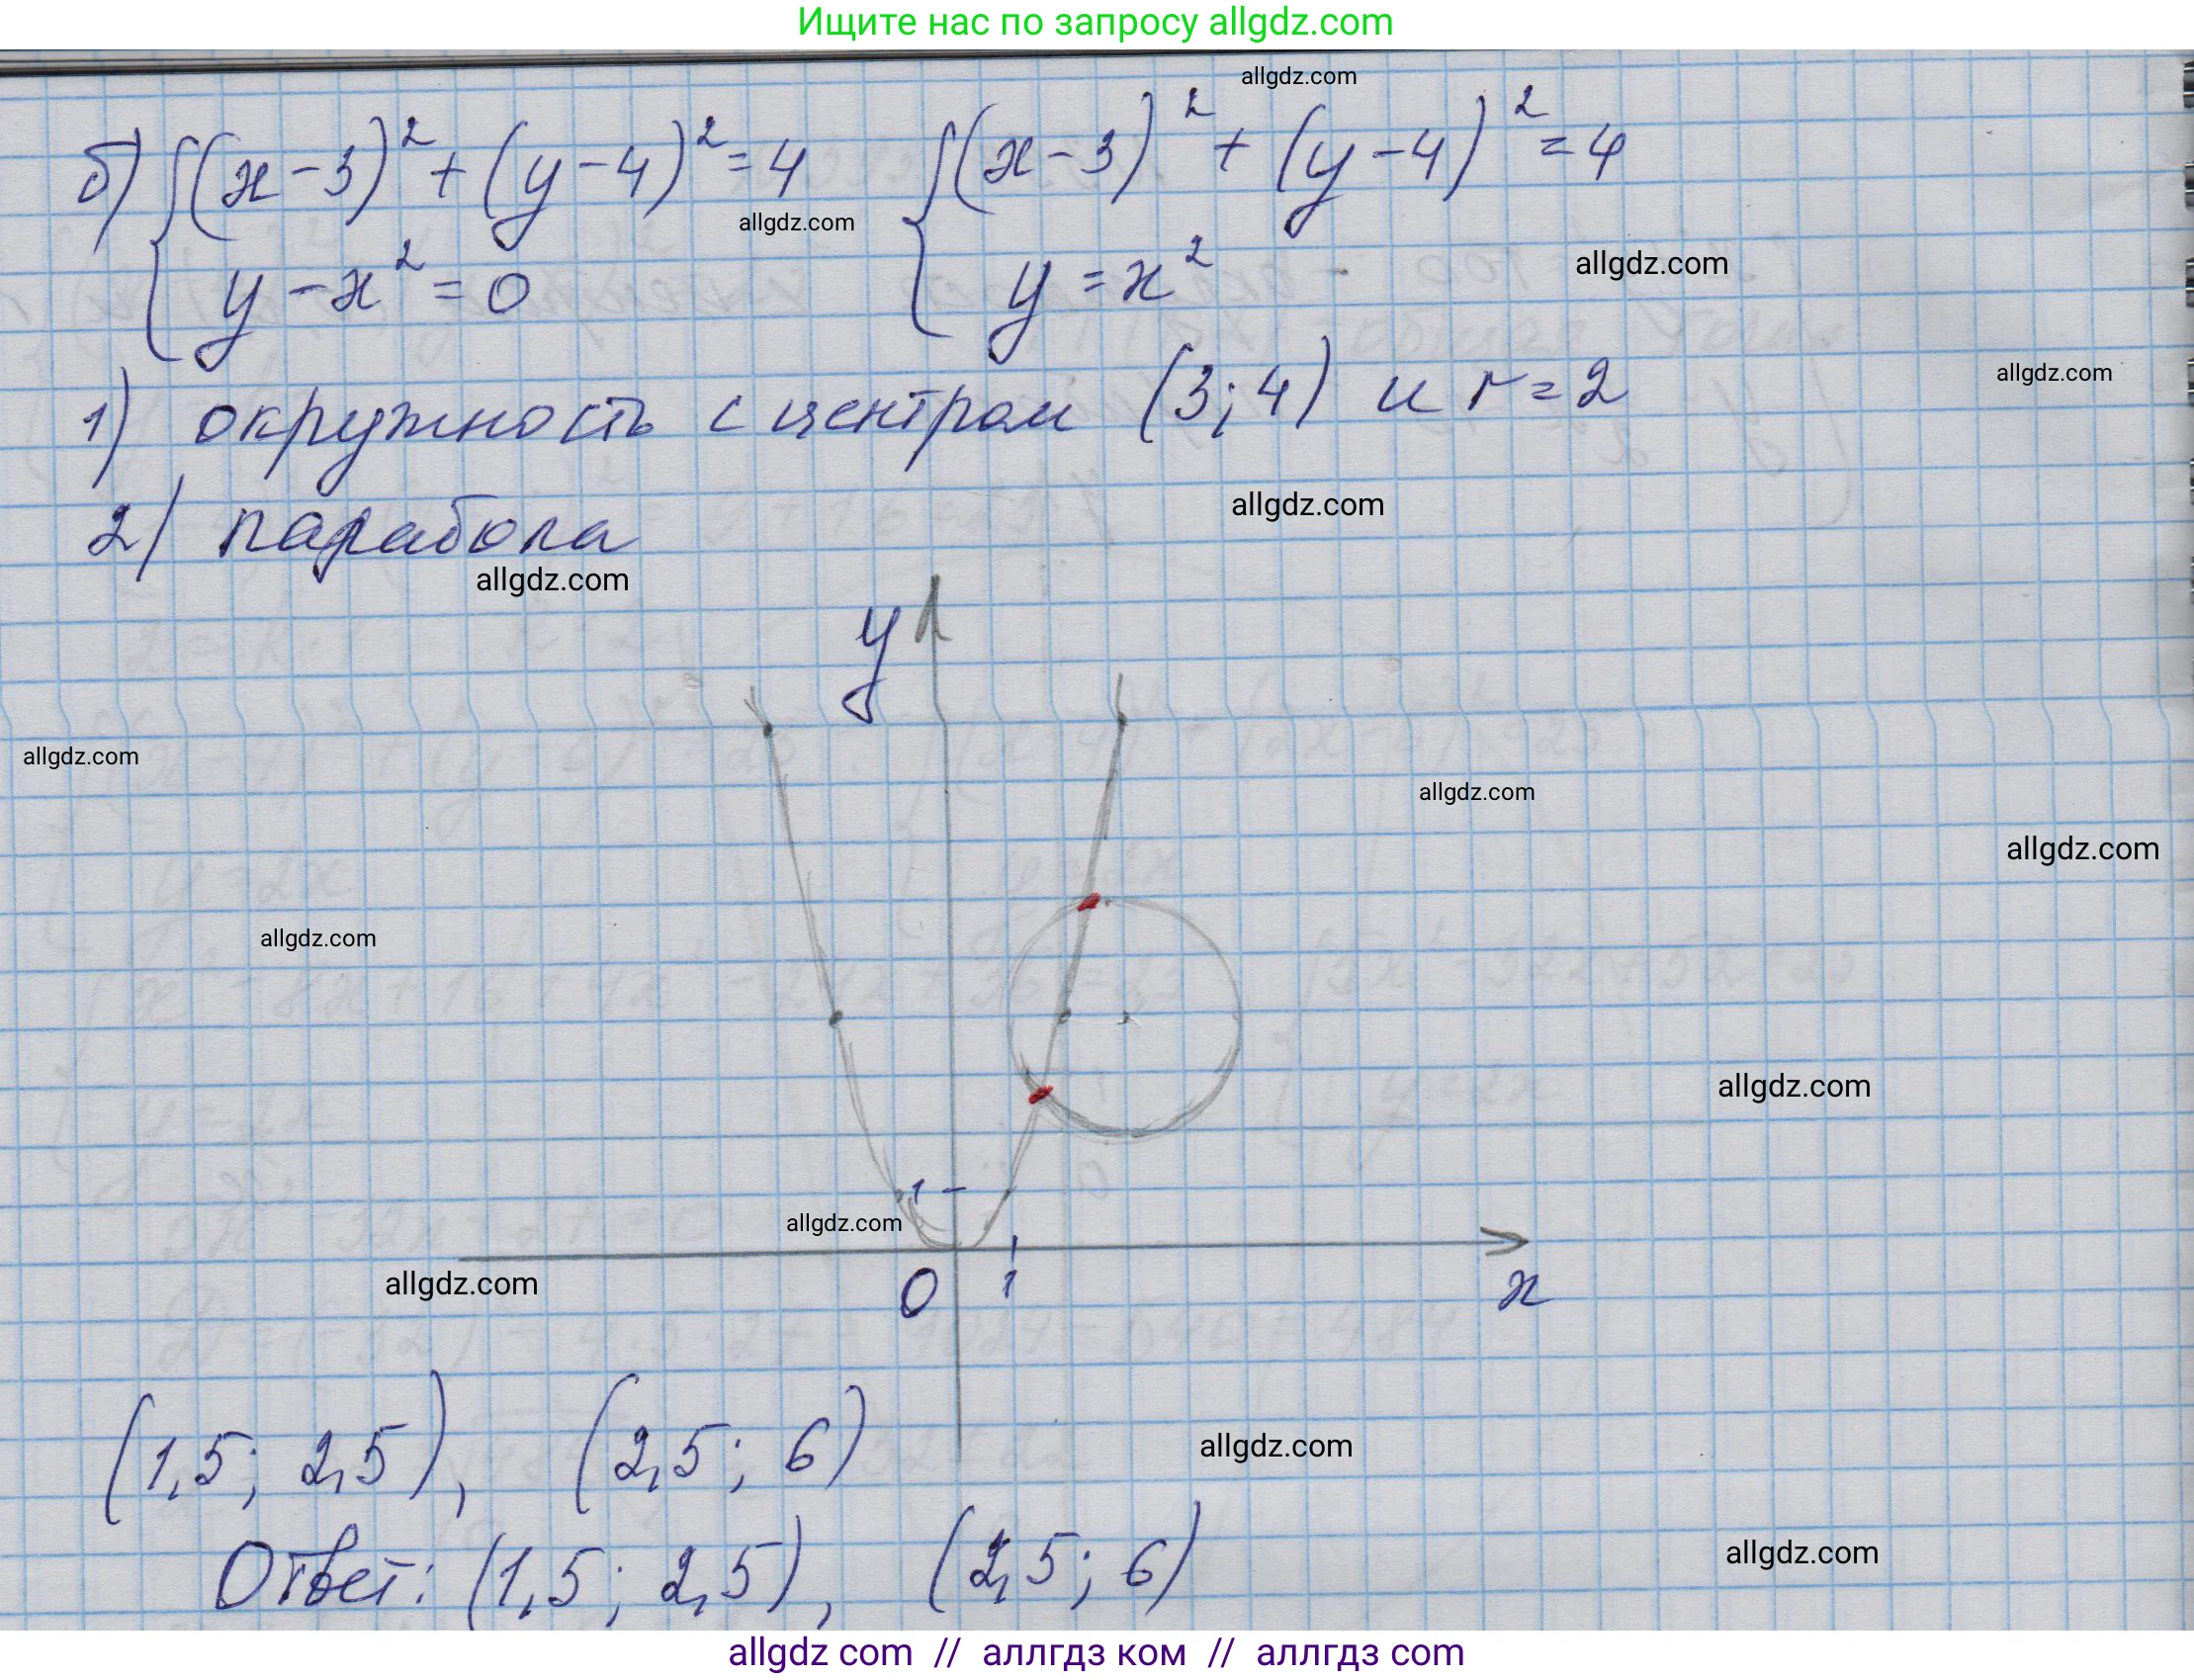 Ищите нас по запросу allgdz.com
allgdz.com
б) { (x-3)² + (y-4)² = 4 { (x-3)² + (y-4)² = 4
allgdz.com
y - x² = 0 y = x²
allgdz.com
1) окружность с центром (3; 4) и r = 2
allgdz.com
allgdz.com
2) парабола
allgdz.com
y
allgdz.com
allgdz.com
allgdz.com
allgdz.com
allgdz.com
1
allgdz.com
0 1 x
allgdz.com
(1,5; 2,5), (2,5; 6)
allgdz.com
Ответ: (1,5; 2,5), (2,5; 6)
allgdz.com
allgdz com // аллгдз ком // аллгдз com